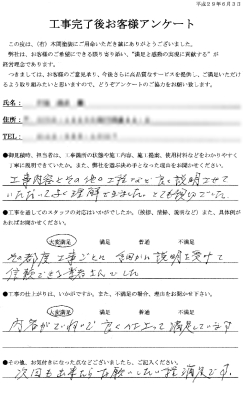 平成２９年６月３３
工事完了後お客様アンケート
この度は、(有) 木間塗装にご用命いただき誠にありがとうございました。
弊社は、お客様のご希望にできる限り寄り添い、"満足と感動の実現に貢献する" が
経営理念であります。
つきましては、お客様のご意見より、今後さらに高品質なサービスを提供し、ご満足いただけ
るよう取り組みたいと思いますので、どうぞアンケートのご協力をお願い致します。
氏名：
住所：
TEL：
●御見積時、担当者は、工事箇所の状態や施工内容、施工提案、使用材料などをわかりやすく
丁寧に説明できていたか。また、弊社を選ぶ決め手となった理由をお聞かせください。
工事内容とその他の工程など良く説明させて
いただってよく理解できました
●工事を通してのスタッフの対応はいかがでしたか。(挨拶、清掃、説明など) また、具体例が
あればお聞かせください。
大変満足 満足 普通 不満足
その都度工事ごとに細かい説明を受けて
信頼できる業者さんでした
●工事の仕上がりは、いかがですか。また、不満足の場合、理由をお聞かせ下さい。
大変満足 満足 普通 不満足
内容が 良く仕上って満足しています
●その他、お気付きになった点などございましたら、ご記入ください。
次回も出来たらお願いしたい程満足です。